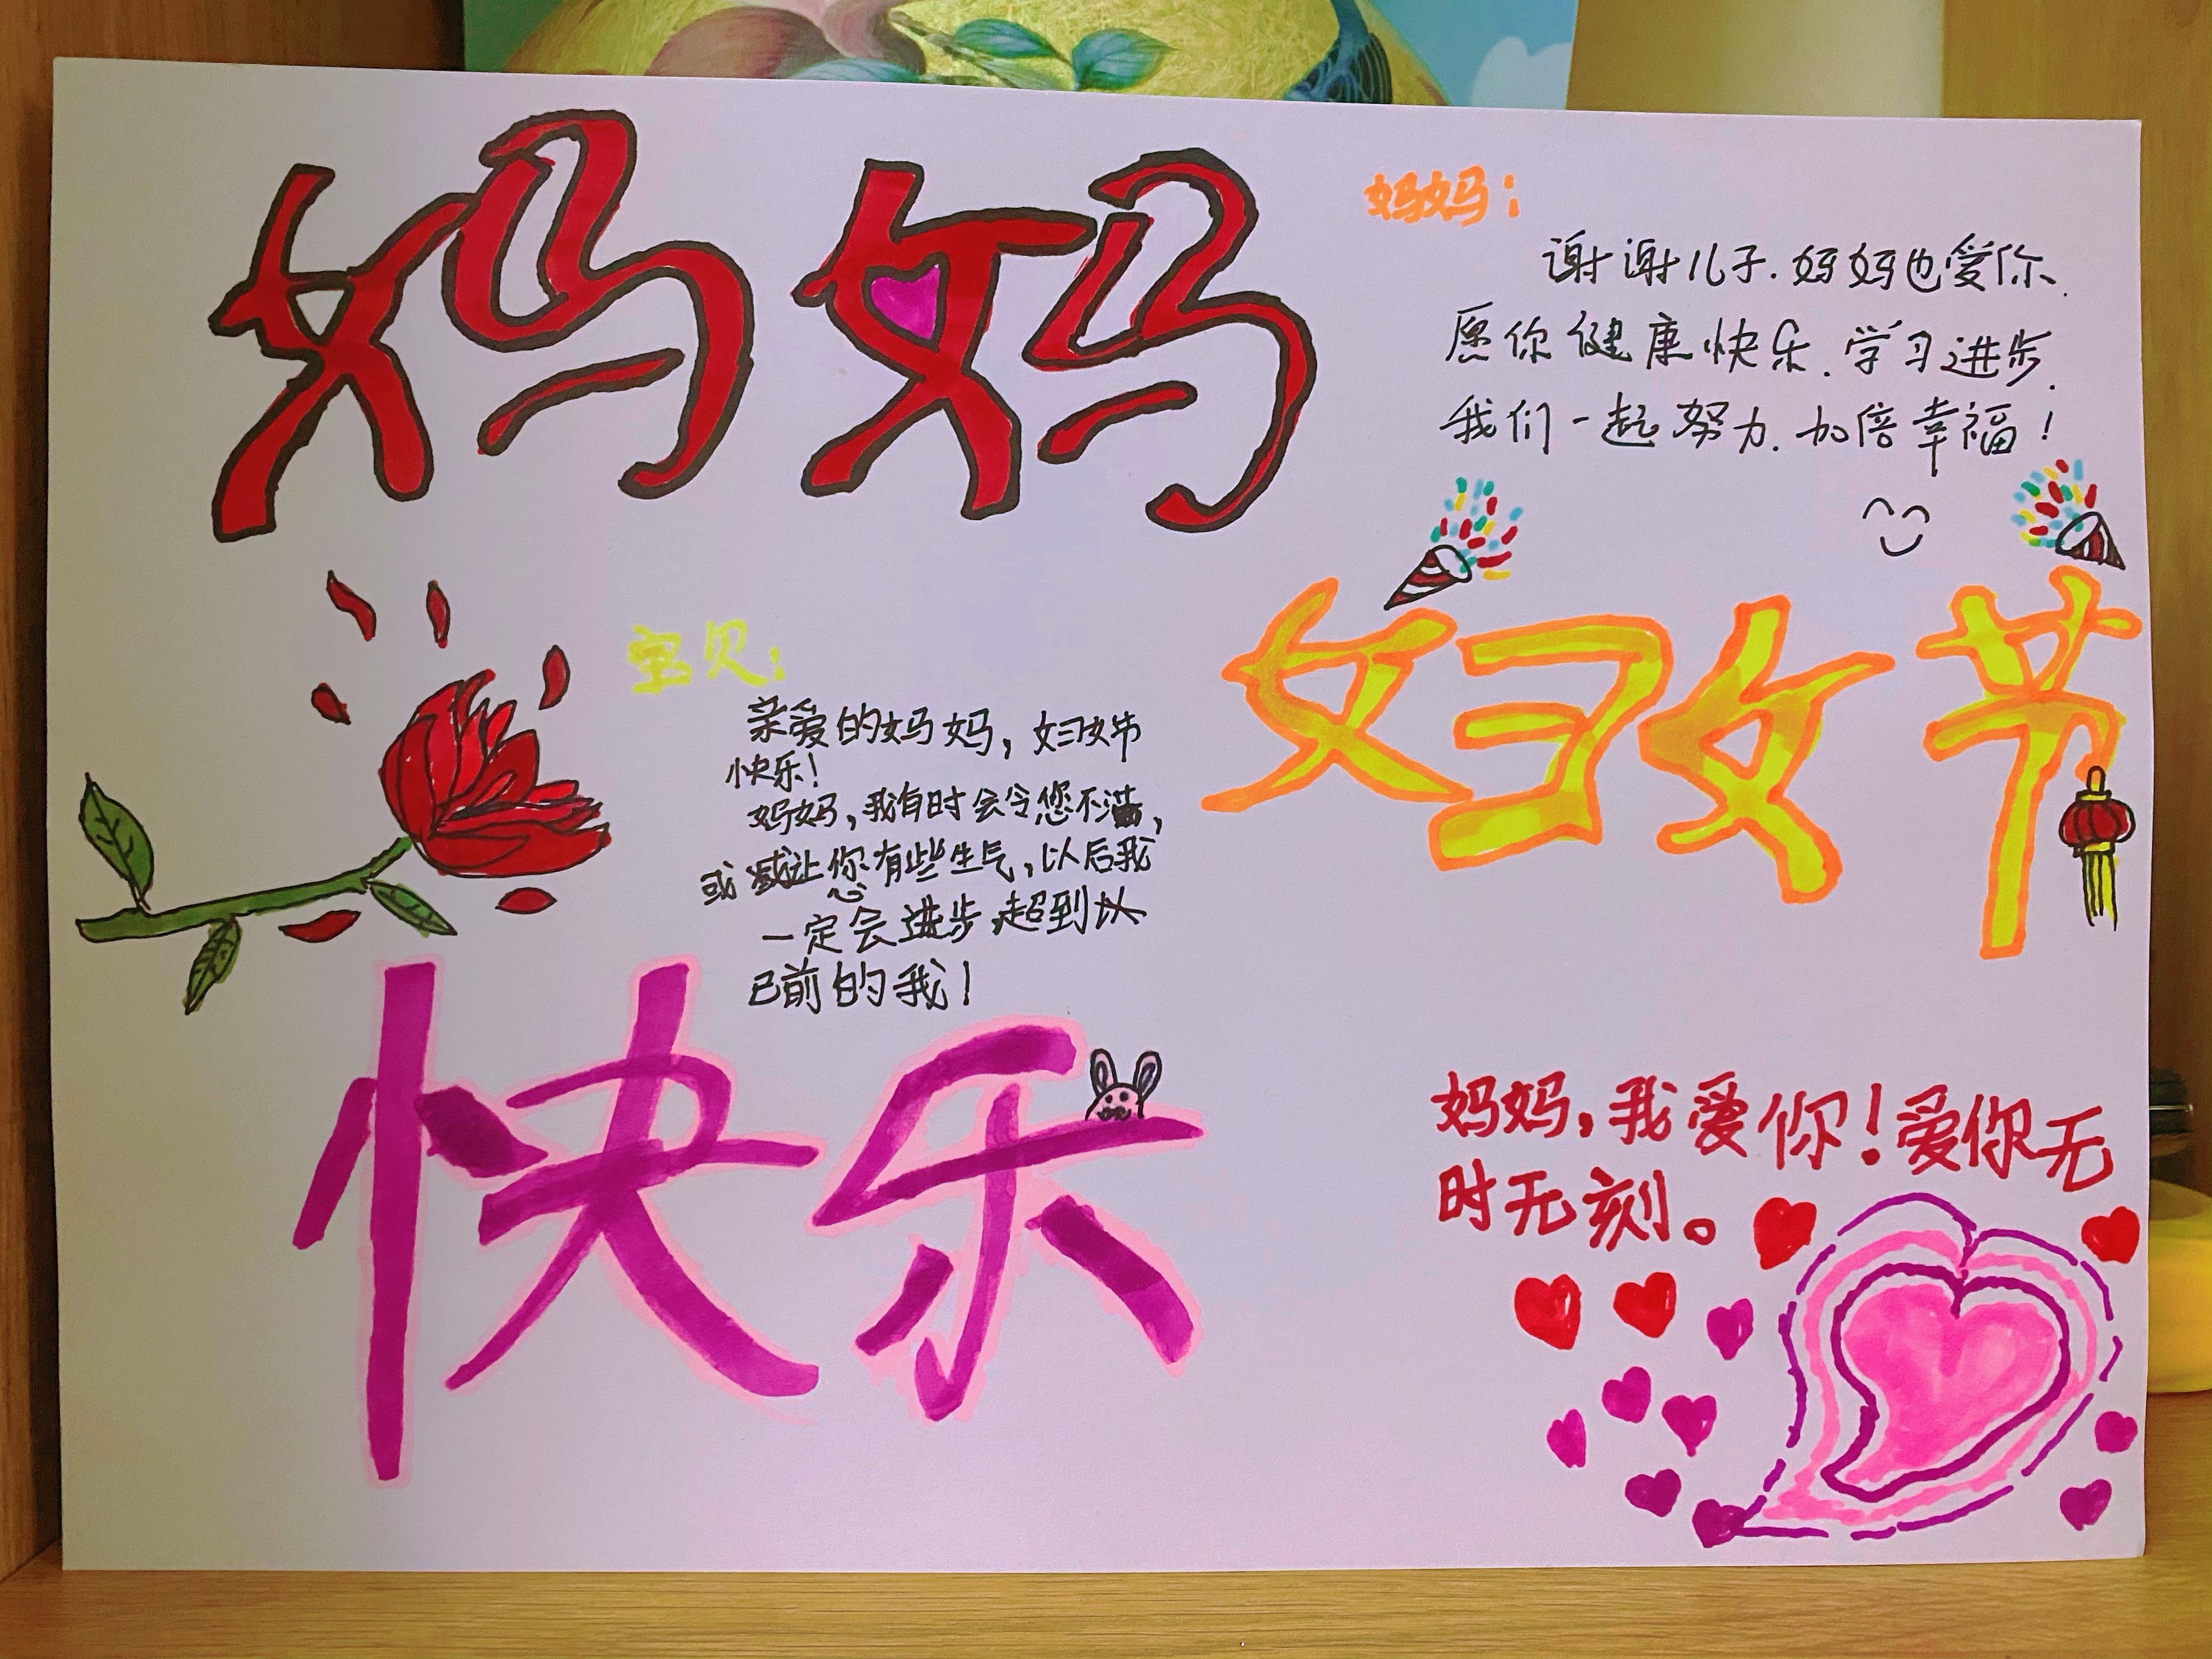 妈妈
妈妈：
谢谢儿子.妈妈也爱你.
愿你健康快乐.学习进步.
我们一起努力.加倍幸福！
妇女节
宝贝：
亲爱的妈妈，妇女节
快乐！
妈妈，我有时会令您不满，
或 让您有些生气，以后我
一定会进步,超到
已前的我！
快乐
妈妈，我爱你！爱你无
时无刻。